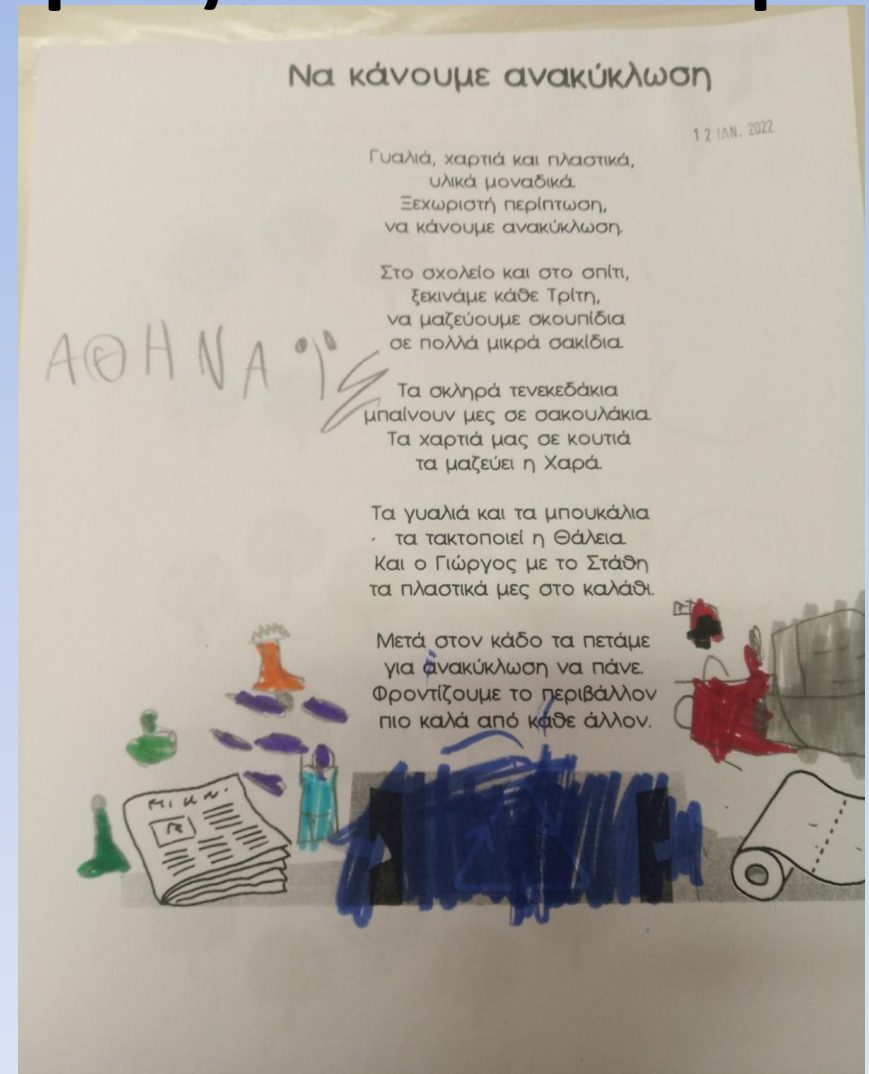 Να κάνουμε ανακύκλωση
12 ΙΑΝ. 2022
Γυαλιά, χαρτιά και πλαστικά,
υλικά μοναδικά.
Ξεχωριστή περίπτωση,
να κάνουμε ανακύκλωση.
Στο σχολείο και στο σπίτι,
ξεκινάμε κάθε Τρίτη,
να μαζεύουμε σκουπίδια
σε πολλά μικρά σακίδια.
ΑΘΗΝΑ
Τα σκληρά τενεκεδάκια
μπαίνουν μες σε σακουλάκια.
Τα χαρτιά μας σε κουτιά
τα μαζεύει η Χαρά.
Τα γυαλιά και τα μπουκάλια
τα τακτοποιεί η Θάλεια.
Και ο Γιώργος με το Στάθη
τα πλαστικά μες στο καλάθι.
Μετά στον κάδο τα πετάμε
για ανακύκλωση να πάνε.
Φροντίζουμε το περιβάλλον
πιο καλά από κάθε άλλον.